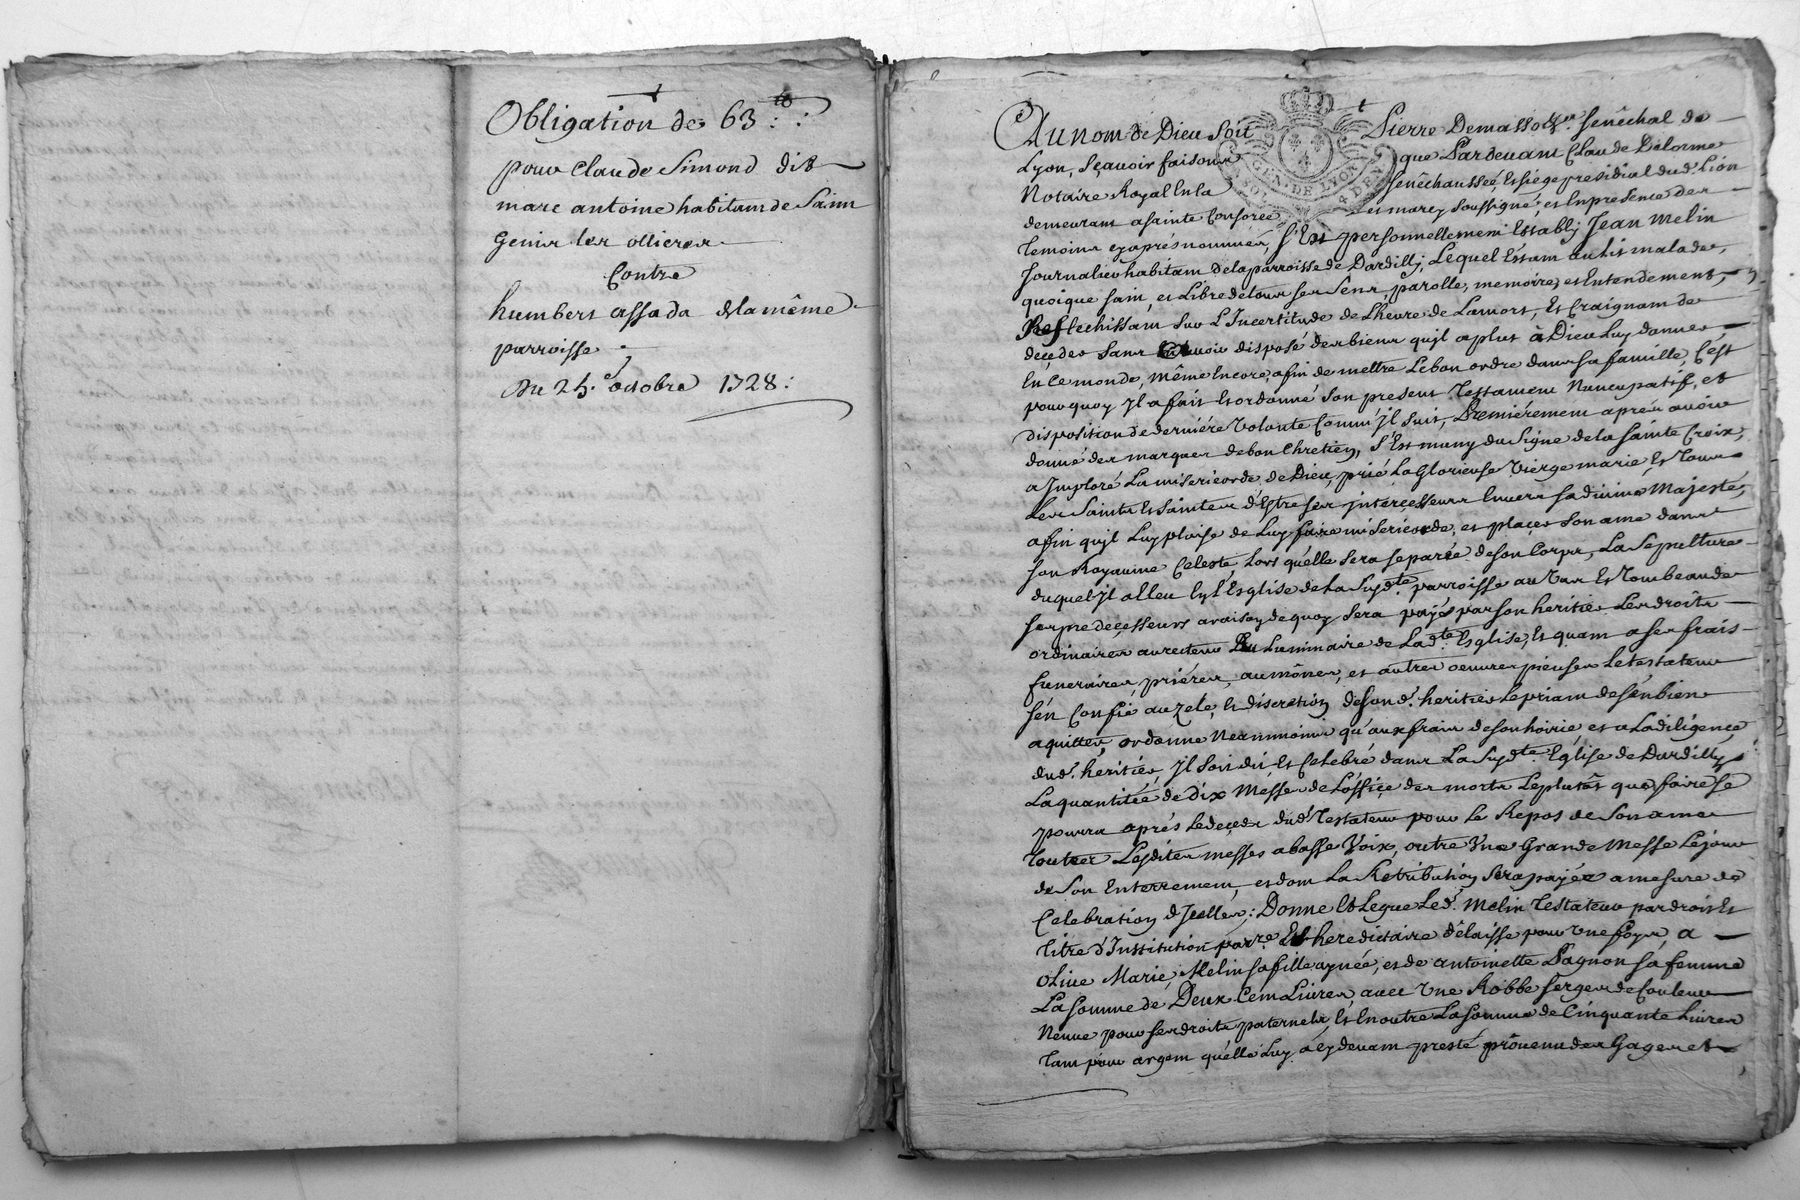 Obligation de 63 ₶ :
pour Claude Simond dit
marc antoine habitant de Saint
Genis les ollieres
Contre
humbert assada de la même
parroisse.
Du 25.e octobre 1728 :
Au nom de Dieu soit Pierre Demasso Sénêchal de
Lyon, sçavoir faisons que Pardevant Claude Delorme
Notaire Royal en la sénêchaussée et siége présidial dud. Lion
demeurant a sainte Consorce et marcy soussigné, et en presence des
temoins cy aprés nommés, s'Est personnellement Establj Jean Melin
Journalier habitant de la parroisse de Dardilly, Lequel Estant au lit malade,
quoique sain, et Libre de tous ses sens, parolle, memoire, et Entendement,
Reflechissant sur L'Incertitude de L'heure de La mort, Et Craignant de
déçéder sans avoir disposé des biens qu'jl a plut à Dieu Luy donner
En Ce monde, même Encore, afin de mettre Le bon ordre dans sa famille, C'est
pourquoy Jl a fait Et ordonné son present Testament Nuncupatif, et
disposition de derniére Volonté Comm' Jl suit, Premiérement aprés avoir
donné des marques de bon Chretien, s'Est muny du signe de la sainte Croix,
a Jmploré La misericorde de Dieu, prié La Glorieuse Vierge marie Et Tous
Les Saints Et Saintes d'Estre ses jnterçesseurs Envers sa divine Majesté,
afin qu'jl Luy plaise de Luy faire misericorde, et placer son ame dans
son Royaume Celeste, Lors qu'elle sera separée de son Corps, La Sepulture
duquel Jl a Eleu En L'Esglise de La susd.te parroisse au Vas Et Tombeau de
ses predecesseurs a raison de quoy sera payés par son heritier Les droits
ordinaires au recteur Du Luminaire de Lad.te Esglise, Et quant a ses frais
funeraires, priéres, aumônes, et autres oeuvres pieuses Le testateur
s'én Confie au zele, et discretion de sond. heritier Le priant de s'én bien
aquitter, ordonne Neanmoins qu'aux frais de son hoirie et a La diligence
dud. heritier, Jl soit dit Et Celebré dans La susd.te Eglise de Dardilly
La quantitée de Dix Messes de L'office des morts Le plutôt que faire se
pourra aprés Le deçeds dud. Testateur pour Le Repos de son ame
toutes Lesdites messes a basse Voix, outre Une Grande Messe Le jour
de son Enterrement, et dont La Retribution sera payée a mesure de
Celebration d'Jcelles ; Donne Et Legue Led. Melin Testateur par droit Et
titre d'Institution par.re Et hereditaire délaisse pour Une foys, a
Olive Marie Melin sa fille aynée, et de antoinette Pagnon sa femme
La somme de Deux Cent Livres, avec Une Robbe serge de Couleur
Neuve pour ses droits paternels, Et En outre La somme de Cinquante Livres
tant pour argent qu'elle Luy a cy devant presté prôvenu des Gages et